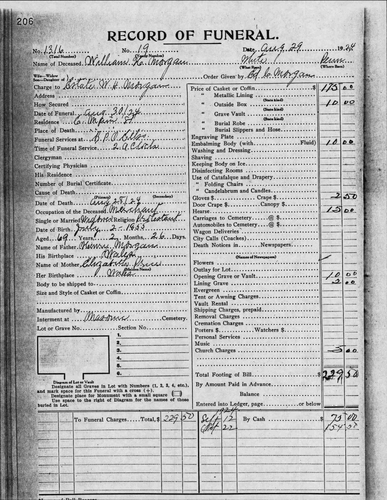 206
RECORD OF FUNERAL.
No. 1316 No. 19 Date Aug 29 1924
(Total Number) (Yearly Number)
Name of Deceased William H. Morgan White Penn
(What Race) (Where Born)
Charge to Estate W. H. Morgan Order Given by Ed. Morgan
Address
How Secured
Date of Funeral Aug 30/24
Residence E. Main St
Place of Death
Funeral Services at B.P.O. Elks
Time of Funeral Service 2 O Clock
Clergyman
Certifying Physician
His Residence
Number of Burial Certificate
Cause of Death
Date of Death Aug 28/24
Occupation of the Deceased Merchant
Single or Married Religion Protestant
Date of Birth
Aged 69 Years, 2 Months, 26 Days.
Name of Father Morgan
His Birthplace Wales
Name of Mother Elizabeth Price
Her Birthplace Wales
Body to be shipped to
Size and Style of Casket or Coffin
Manufactured by
Interment at Masonic Cemetery.
Lot or Grave No. Section No.
1
2
3
4
5
6
Diagram of Lot or Vault
Designate all Graves in Lot with Numbers (1, 2, 3, 4, etc.), and mark space for this Funeral with a cross (+).
Designate place for Monument with a small square
Use space to right of Diagram for the names of those buried in Lot.
Price of Casket or Coffin $ 175 00
" Metallic Lining
" Outside Box (State kind) 10 00
" Grave Vault (State kind)
" Burial Robe (State kind)
" Burial Slippers and Hose
Engraving Plate
Embalming Body (with Fluid) 10 00
Washing and Dressing
Shaving
Keeping Body on Ice
Disinfecting Rooms
Use of Catafalque and Drapery
" Folding Chairs
" Candelabrum and Candles
Gloves $ Crape $ 2 50
Door Crape $ Canopy $
Hearse 15 00
Carriages to Cemetery @ $
Automobiles to Cemetery @ $
Wagon Deliveries
City Calls (Coaches)
Death Notices in Newspapers
(Names of Newspapers)
Flowers
Outlay for Lot
Opening Grave or Vault 10 00
Lining Grave 2 00
Evergreen
Tent or Awning Charges
Vault Rental
Shipping Charges, prepaid
Removal Charges
Cremation Charges
Porters $ Watchers $
Personal Services
Music
Church Charges 5 00
Total Footing of Bill $ 229 50
By Amount Paid in Advance
Balance
Entered into Ledger, page or below.
To Funeral Charges Total, $ 229 50
1924
Sept 12 By Cash $ 75 00
22 154 50